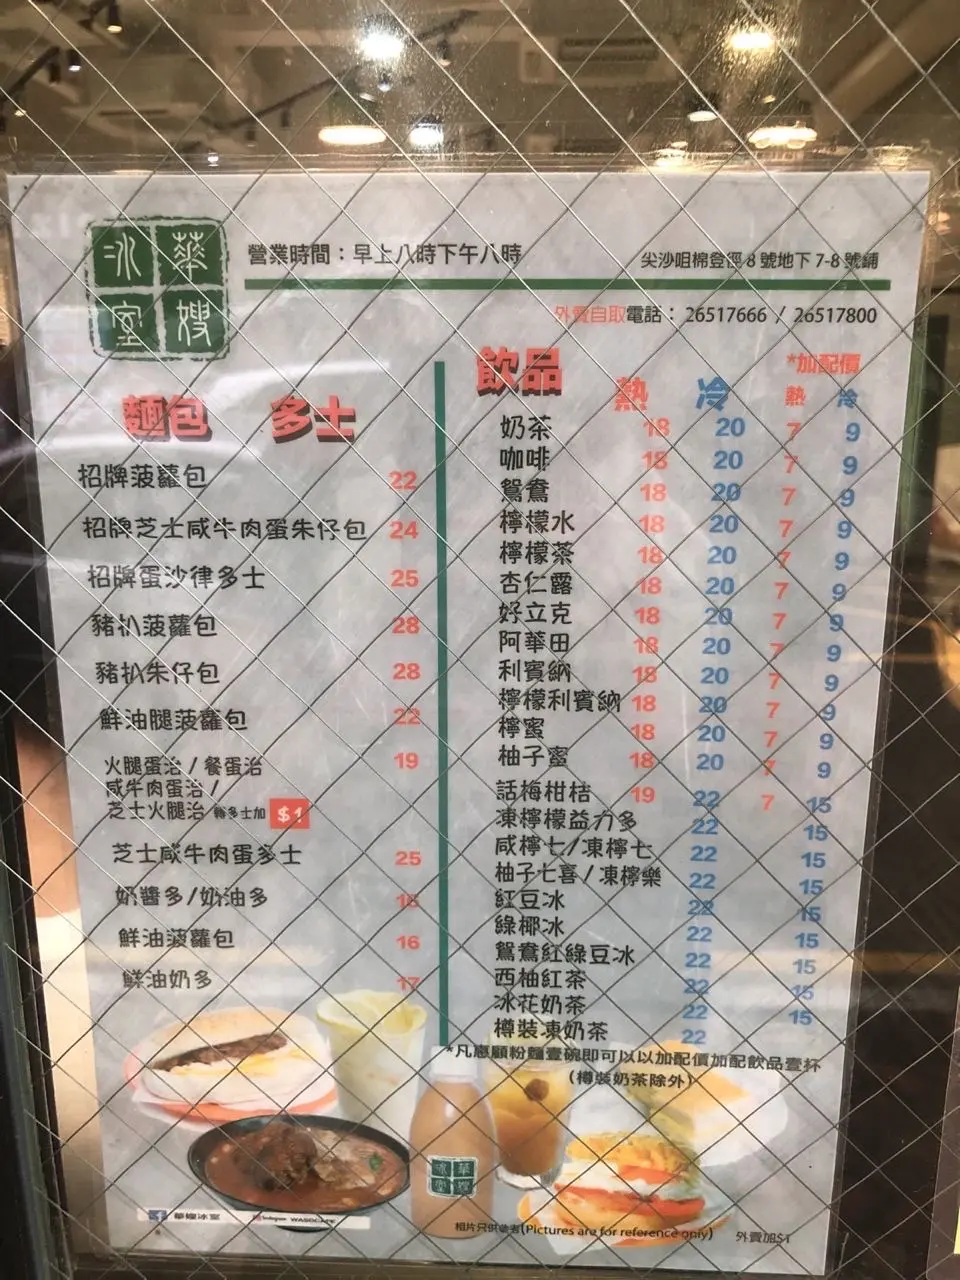 冰華室嫂
營業時間：早上八時下午八時
尖沙咀棉登徑8號地下7-8號鋪
外賣自取電話： 26517666 / 26517800
麵包 多士
招牌菠蘿包 22
招牌芝士咸牛肉蛋朱仔包 24
招牌蛋沙律多士 25
豬扒菠蘿包 28
豬扒朱仔包 28
鮮油腿菠蘿包 22
火腿蛋治 / 餐蛋治 19
咸牛肉蛋治 /
芝士火腿治 轉多士加 $1
芝士咸牛肉蛋多士 25
奶醬多/奶油多
鮮油菠蘿包 16
鮮油奶多 17
飲品 熱 冷 *加配價 熱 冷
奶茶 18 20 7 9
咖啡 18 20 7 9
鴛鴦 18 20 7 9
檸檬水 18 20 7 9
檸檬茶 18 20 7 9
杏仁露 18 20 7 9
好立克 18 20 7 9
阿華田 18 20 7 9
利賓納 18 20 7 9
檸檬利賓納 18 20 7 9
檸蜜 18 20 7 9
柚子蜜 18 20 7 9
話梅柑桔 19 22 7 15
凍檸檬益力多 22 15
咸檸七/凍檸七 22 15
柚子七喜/凍檸樂 22 15
紅豆冰 22 15
綠椰冰 22 15
鴛鴦紅綠豆冰 22 15
西柚紅茶 22 15
冰花奶茶 22 15
樽裝凍奶茶 22
*凡惠顧粉麵壹碗即可以以加配價加配飲品壹杯
(樽裝奶茶除外)
冰華室嫂
華嫂冰室 WASOCAFE
相片只供參考(Pictures are for reference only) 外賣加$1